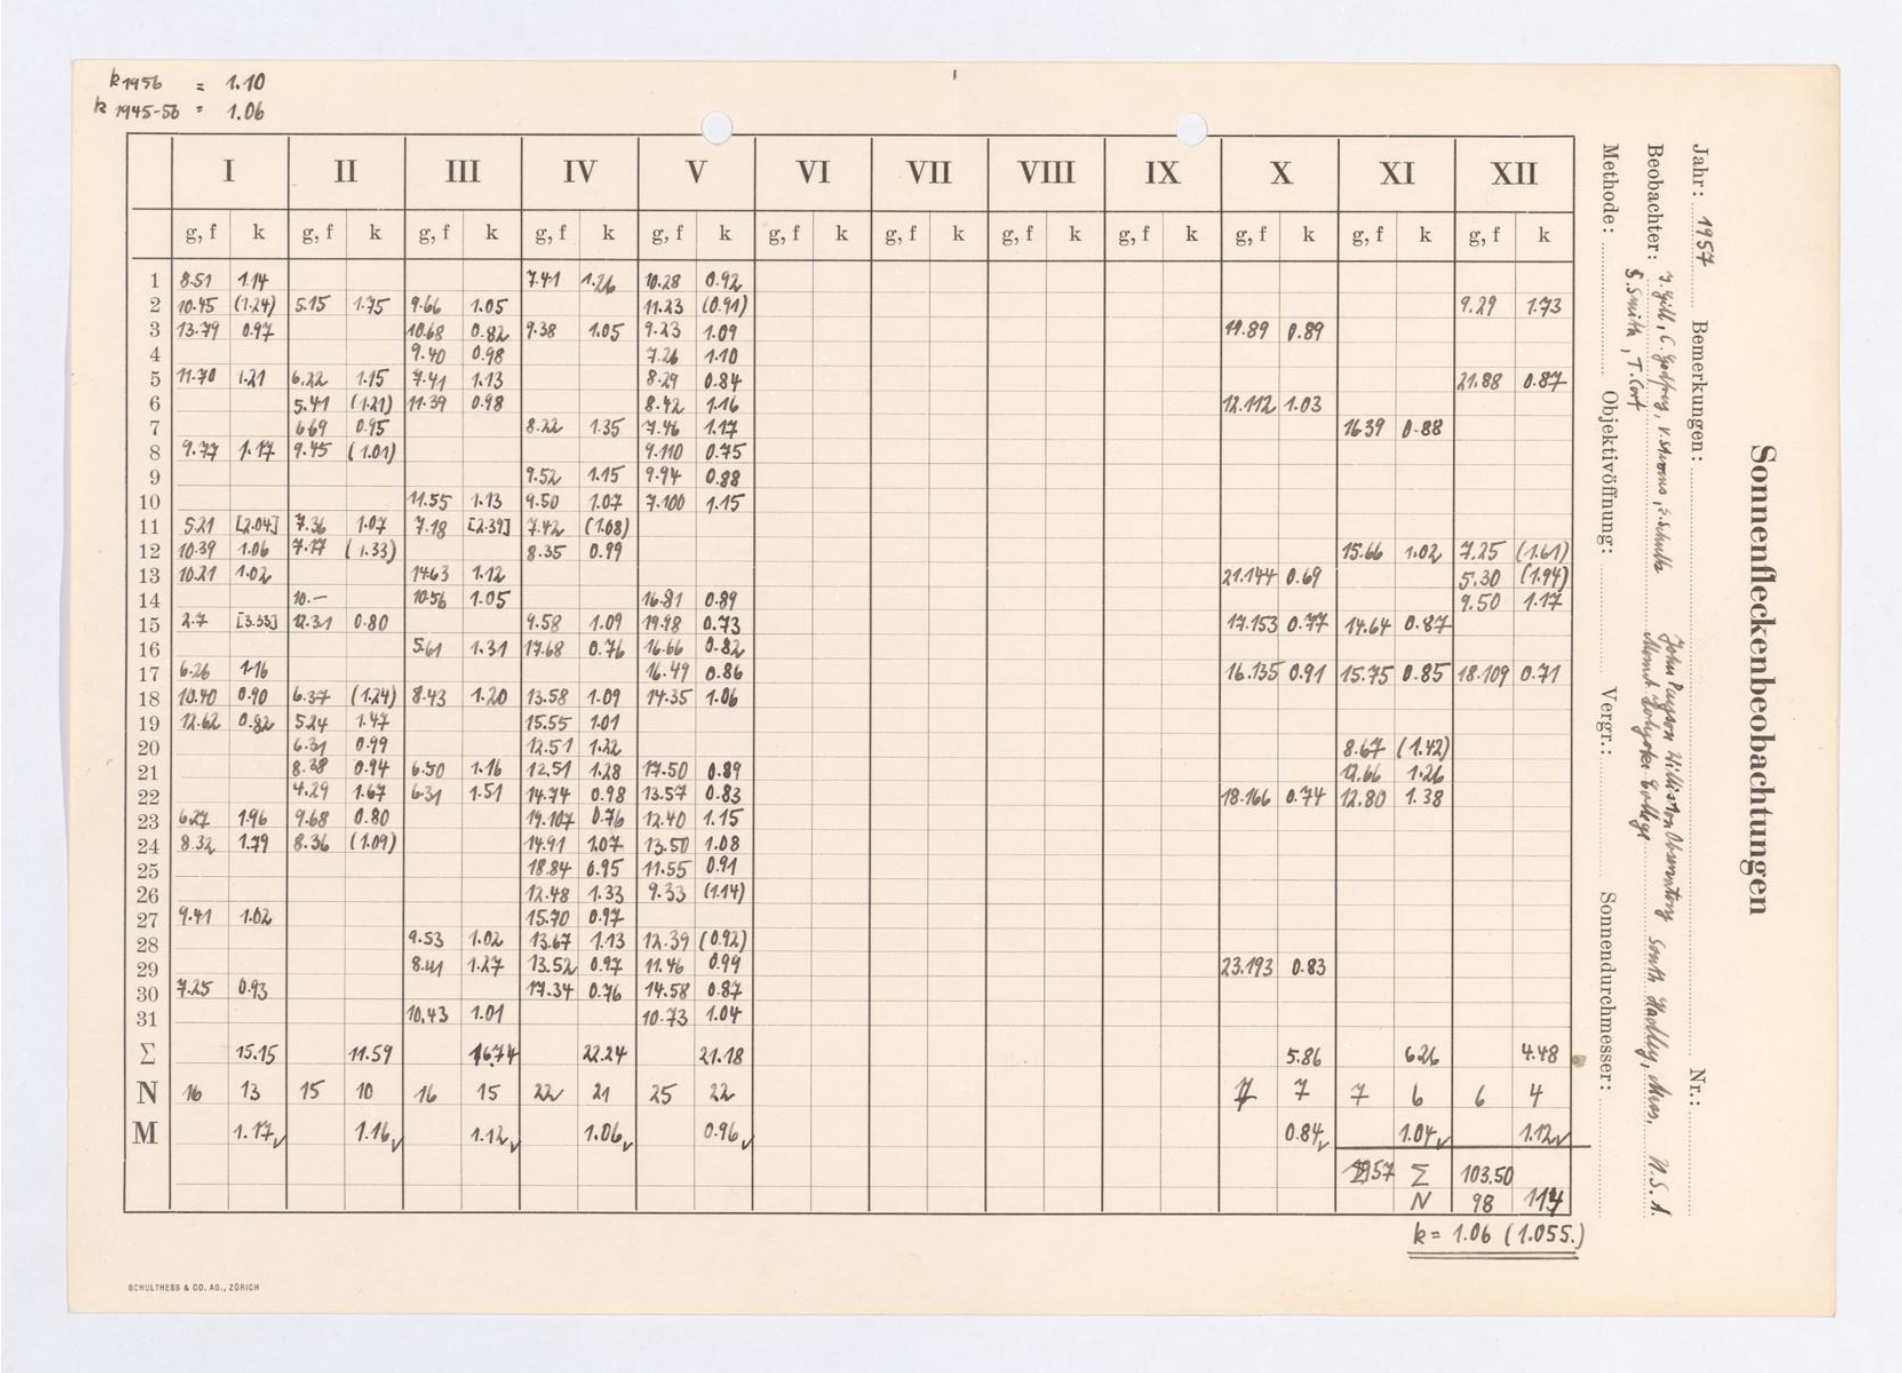 k1956 = 1.10
k1945-56 = 1.06
Sonnenfleckenbeobachtungen
Jahr: 1957 Bemerkungen: Nr.:
Beobachter: J. Gill, C. Godfrey, V. S. Smith, T. Cort John Payson Williston Observatory Mount Holyoke College South Hadley, Mass. U.S.A.
Methode: Objektivöffnung: Vergr.: Sonnendurchmesser:
I II III IV V VI VII VIII IX X XI XII
g, f k g, f k g, f k g, f k g, f k g, f k g, f k g, f k g, f k g, f k g, f k g, f k
1 8.51 1.14 7.41 1.26 10.28 0.92
2 10.45 (1.24) 5.15 1.75 9.66 1.05 11.23 (0.91) 9.29 1.73
3 13.79 0.97 10.68 0.82 9.38 1.05 9.23 1.09 11.89 0.89
4 9.40 0.98 7.26 1.10
5 11.70 1.21 6.22 1.15 7.41 1.13 8.29 0.84 21.88 0.87
6 5.41 (1.21) 11.39 0.98 8.42 1.16 12.112 1.03
7 6.69 0.95 8.22 1.35 7.46 1.17 16.39 0.88
8 9.77 1.17 9.45 (1.01) 9.110 0.75
9 9.52 1.15 9.94 0.88
10 11.55 1.13 9.50 1.07 7.100 1.15
11 5.21 [2.04] 7.36 1.07 7.18 [2.39] 7.42 (1.08)
12 10.39 1.06 7.17 (1.33) 8.35 0.99 15.66 1.02 7.25 (1.61)
13 10.21 1.02 14.63 1.12 21.144 0.69 5.30 (1.94)
14 10.— 10.56 1.05 16.81 0.89 9.50 1.17
15 2.7 [3.33] 12.31 0.80 9.58 1.09 19.98 0.73 17.153 0.77 14.64 0.87
16 5.61 1.31 17.68 0.76 16.66 0.82
17 6.26 1.16 16.49 0.86 16.135 0.91 15.75 0.85 18.109 0.71
18 10.40 0.90 6.37 (1.24) 8.43 1.20 13.58 1.09 14.35 1.06
19 12.62 0.82 5.24 1.47 15.55 1.01
20 6.31 0.99 12.51 1.22 8.67 (1.42)
21 8.38 0.94 6.50 1.16 12.51 1.28 17.50 0.89 12.66 1.26
22 4.29 1.67 6.31 1.51 14.74 0.98 13.57 0.83 18.166 0.74 12.80 1.38
23 6.27 1.96 9.68 0.80 19.107 0.76 12.40 1.15
24 8.32 1.79 8.36 (1.09) 14.91 1.07 13.50 1.08
25 18.84 0.95 11.55 0.91
26 12.48 1.33 9.33 (1.14)
27 9.41 1.02 15.70 0.97
28 9.53 1.02 13.67 1.13 12.39 (0.92)
29 8.41 1.27 13.52 0.97 11.46 0.99 23.193 0.83
30 7.25 0.93 17.34 0.76 14.58 0.87
31 10.43 1.01 10.73 1.04
Σ 15.15 11.59 16.74 22.24 21.18 5.86 6.26 4.48
N 16 13 15 10 16 15 22 21 25 22 7 7 7 6 6 4
M 1.17✓ 1.16✓ 1.12✓ 1.06✓ 0.96✓ 0.84✓ 1.04✓ 1.12✓
1957 Σ 103.50
N 98 114
k = 1.06 (1.055.)
SCHULTHESS & CO. AG., ZÜRICH